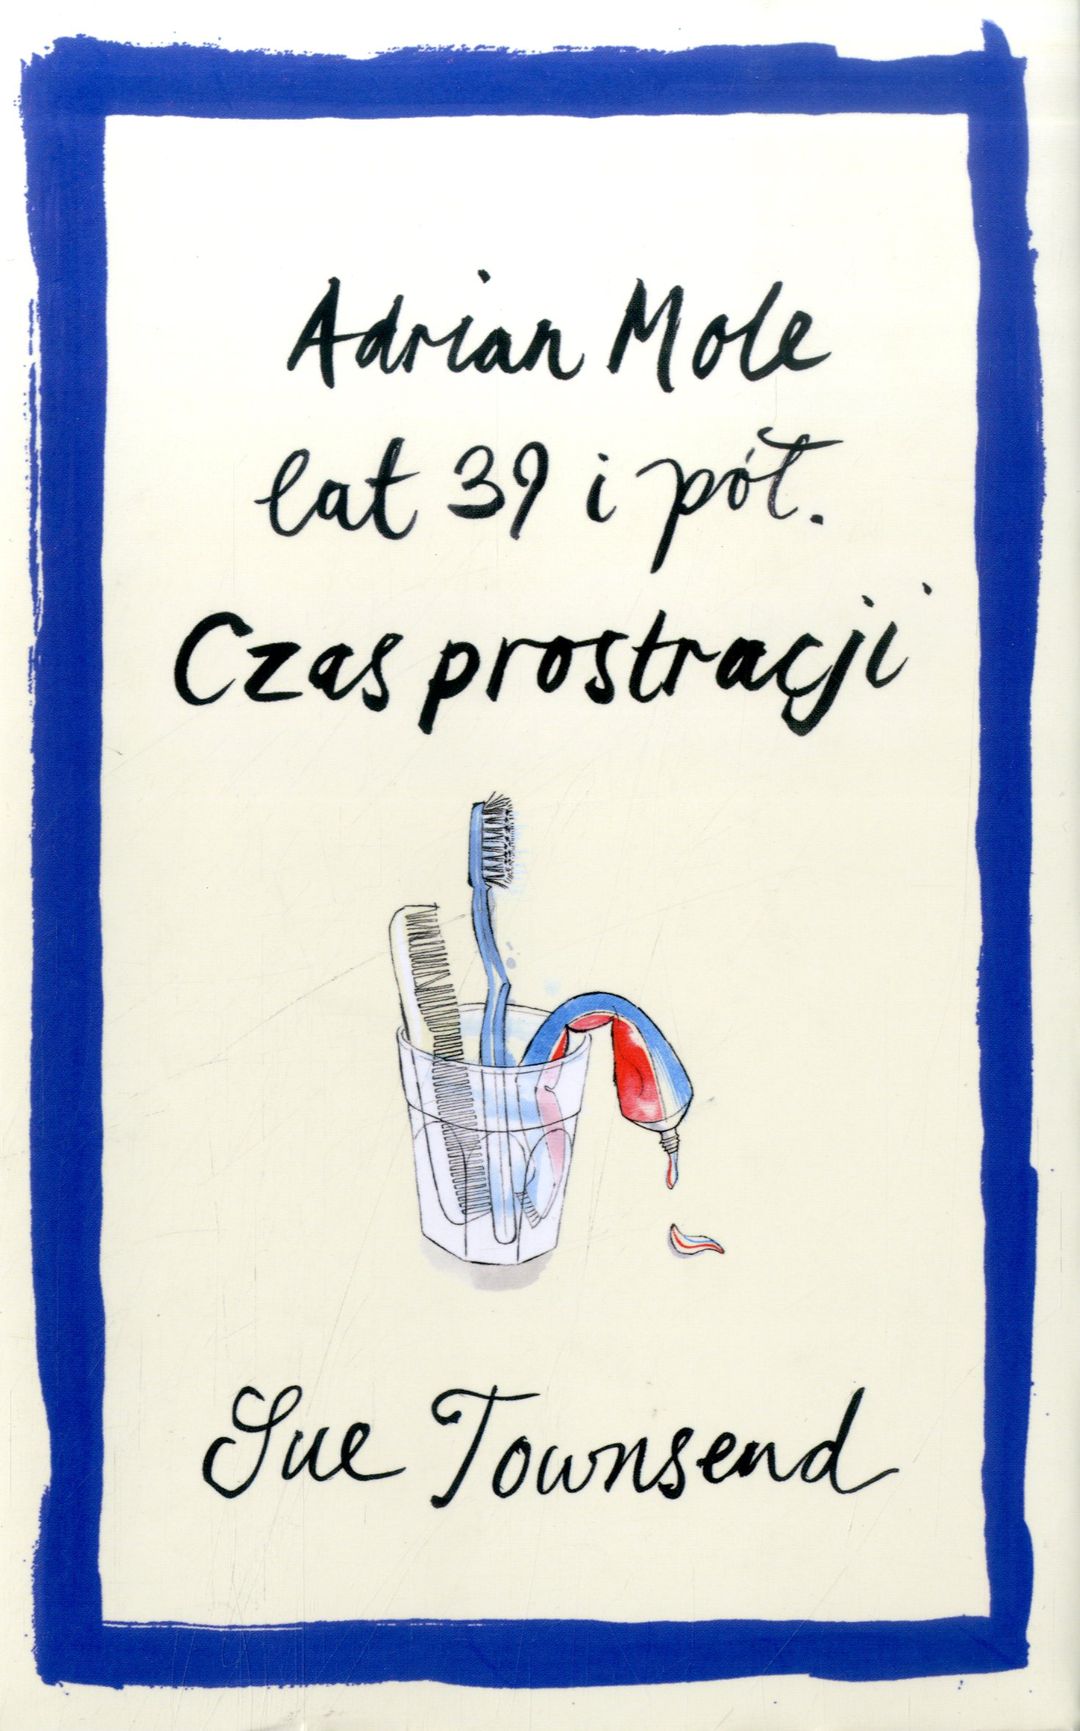 Adrian Mole
lat 39 i pół.
Czas prostracji
Sue Townsend